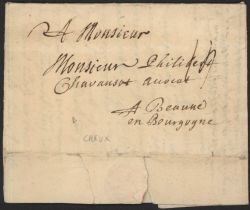 A Monsieur
Monsieur Philibert
Chavansot avocat
A Beaune
en Bourgogne
CHEUX